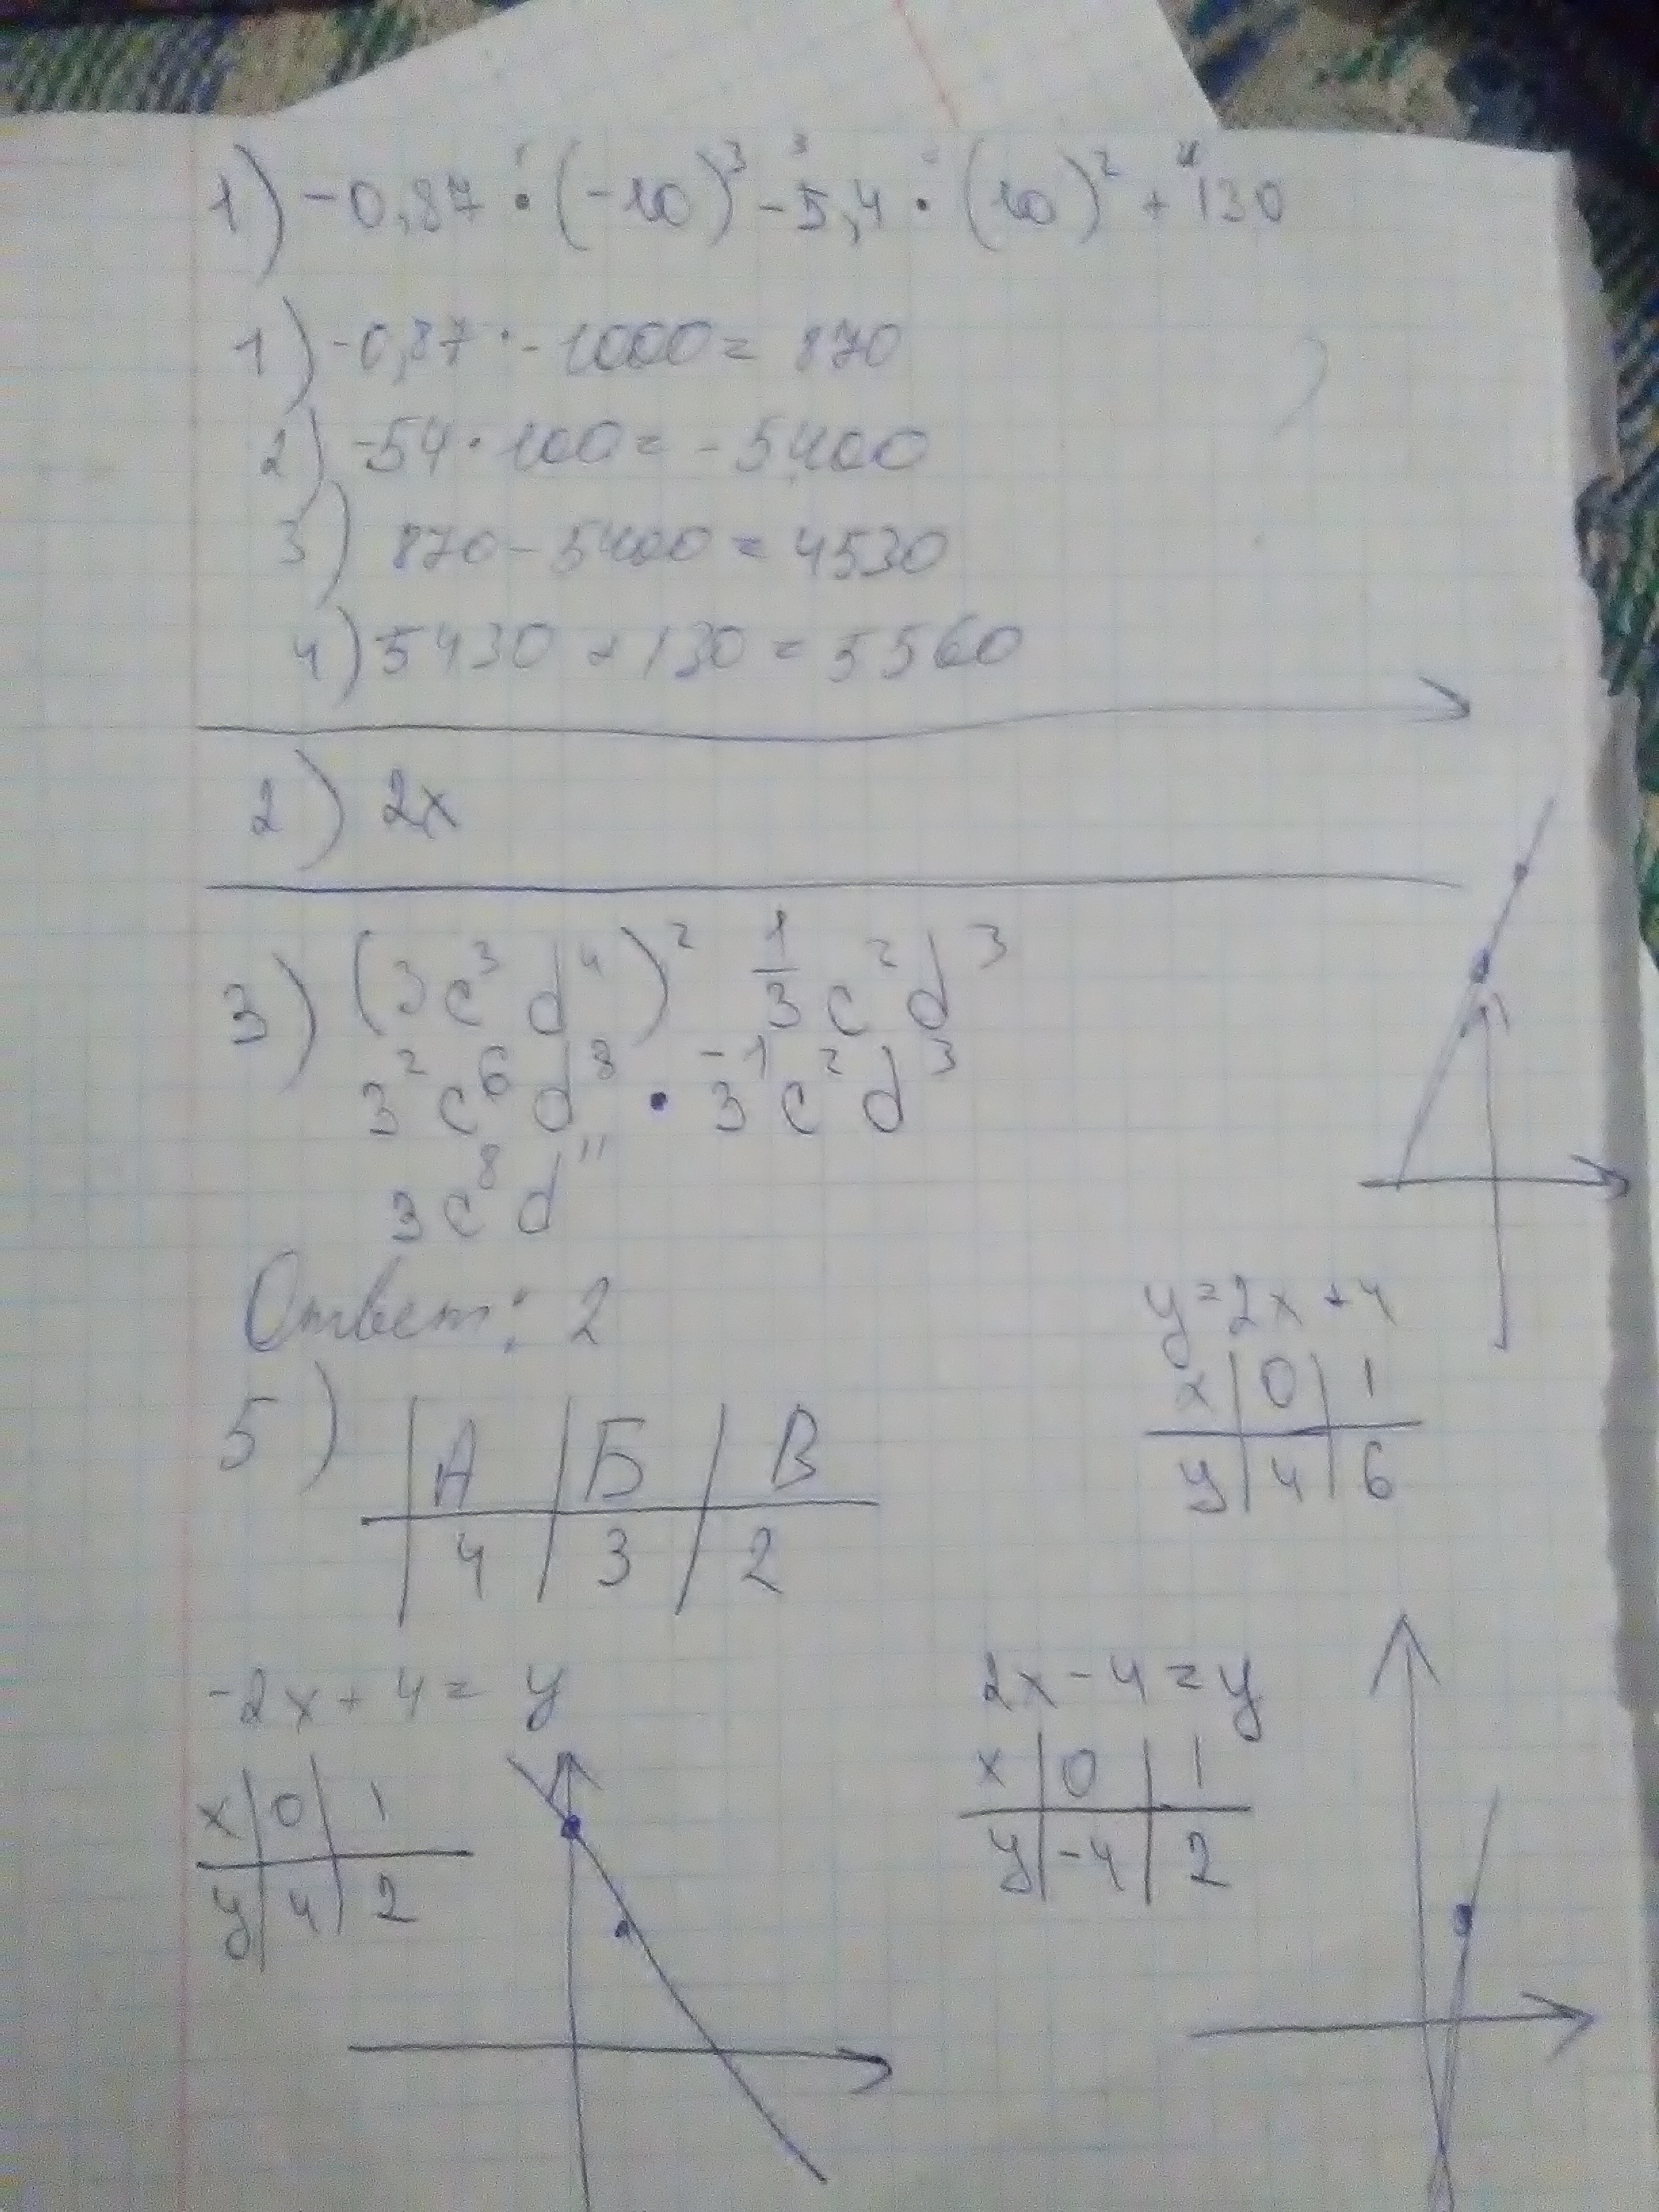 1) -0,87 · (-10)³ - 5,4 · (10)² + 130
1) -0,87 · -1000 = 870
2) -54 · 100 = -5400
3) 870 - 5400 = 4530
4) 5430 + 130 = 5560
2) 2x
3) (3c³d⁴)² 1/3 c²d³
3²c⁶d⁸ · 3⁻¹c²d³
3c⁸d¹¹
Ответ: 2
y = 2x + 4
x | 0 | 1
y | 4 | 6
5) | А | Б | В
| 4 | 3 | 2
-2x + 4 = y
x | 0 | 1
y | 4 | 2
2x - 4 = y
x | 0 | 1
y | -4 | 2